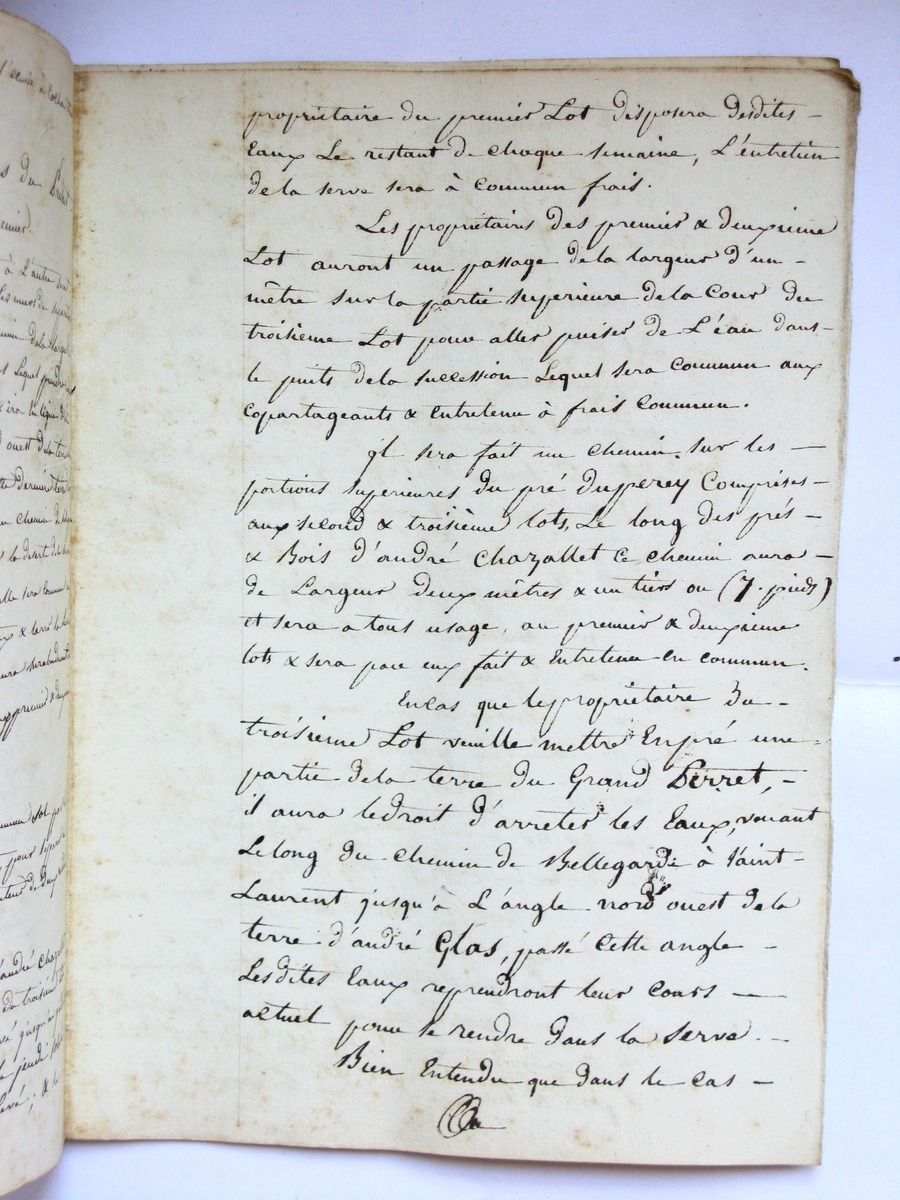 propriétaire du premier Lot disposera desdites —
Eaux Le restant de chaque semaine, L'entretien
de la serve sera à commun frais.
Les propriétaires des premier & deuxieme
Lot auront un passage de la largeur d'un —
mêtre sur la partie superieure de la Cour du
troisieme Lot pour aller puiser de L'éau dans —
le puits de la succession Lequel sera Commun aux
Copartageants & Entretenu à frais Commun.
il sera fait un chemin sur les —
portions superieures du pré duperey Comprises —
aux second & troisième lots, Le long des prés —
& Bois d'andré Chazallet Ce chemin aura —
de Largeur deux mêtres & un tiers ou (7. pieds)
et sera a tous usage, au premier & deuxieme
lots & sera par eux fait & Entretenu en commun.
En cas que le propriétaire du —
troisieme Lot veuille mettre En pré une —
partie de la terre du Grand Perret, —
il aura le droit d'arreter les Eaux, venant
Le long du chemin de Bellegarde à Saint —
Laurent jusqu'à L'angle nord ouest de la
terre d'andré Glas, passé Cette angle —
Lesdites Eaux reprendront leur cours —
actuel pour se rendre dans la serve. —
Bien Entendu que dans le cas —
s du
à L'autre
ouest de la
chemin de
& terre
d'andré
du troisieme
jusqu'à
jeudi